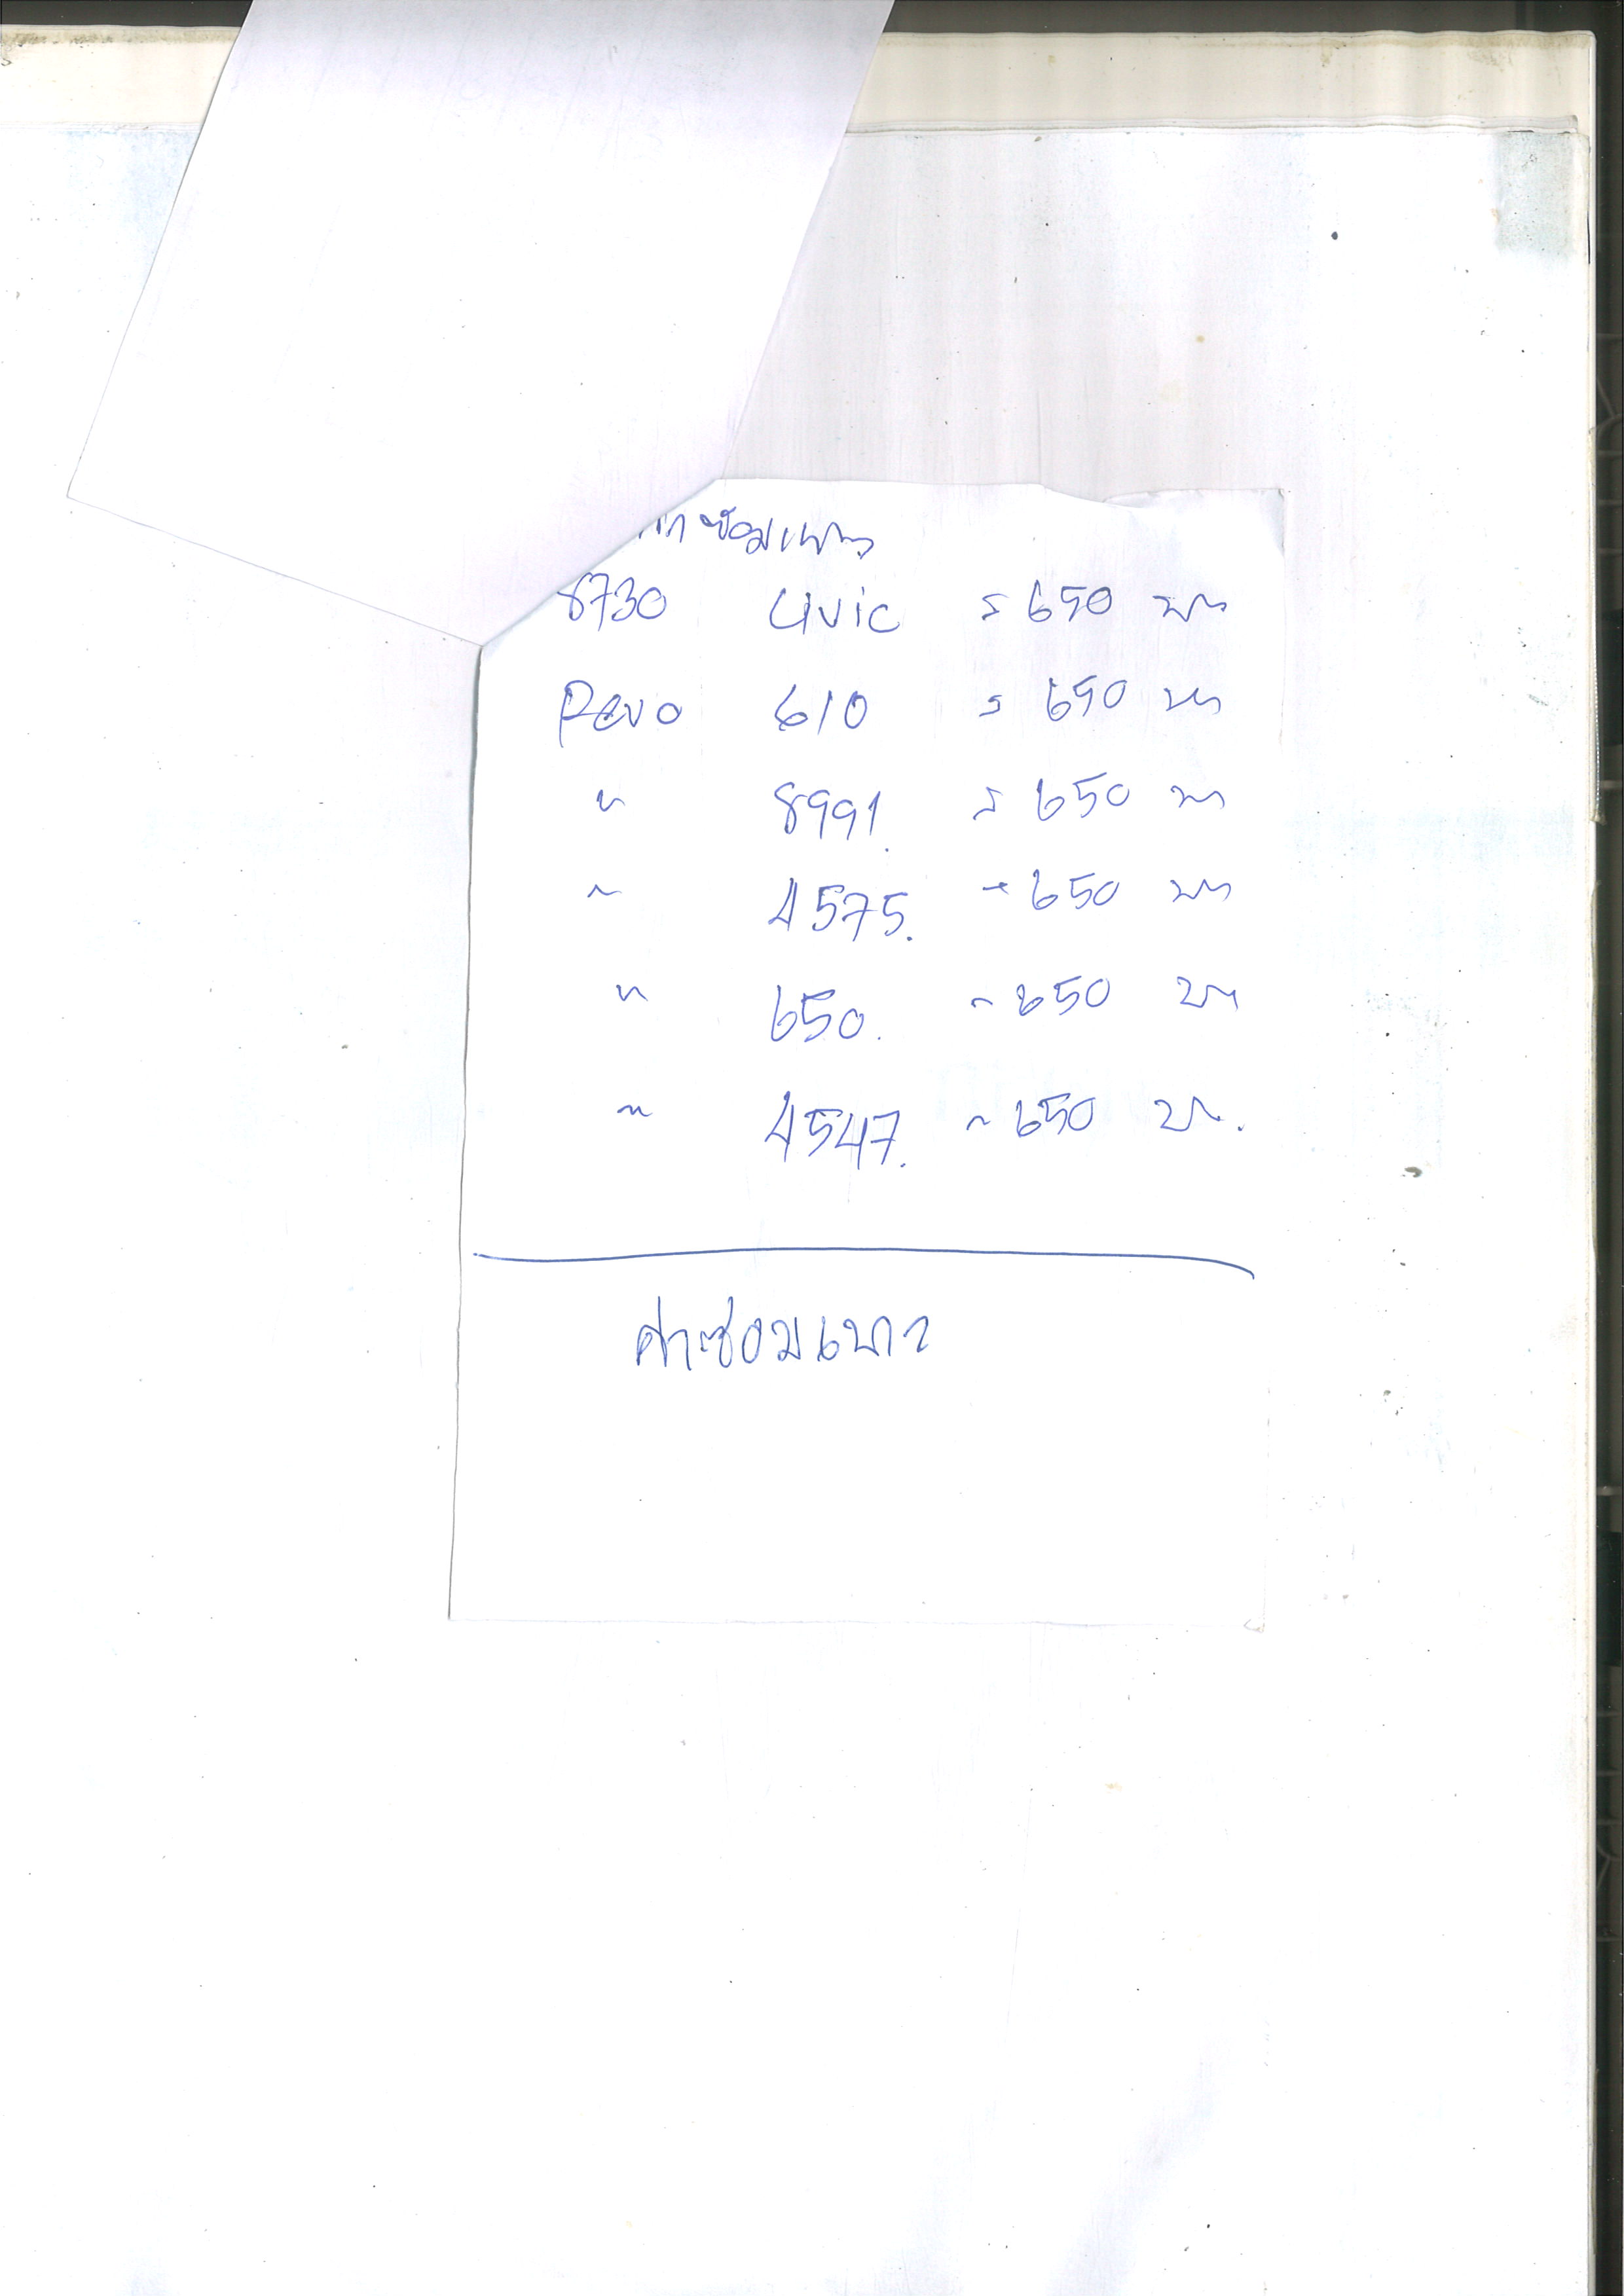 ซ่อมเบาะ
8730 Civic = 650 บาท
Revo 610 = 650 บาท
" 8991. = 650 บาท
" 4575. = 650 บาท
" 650. " 650 บาท
" 4547. " 650 บาท.
ค่าซ่อมเบาะ